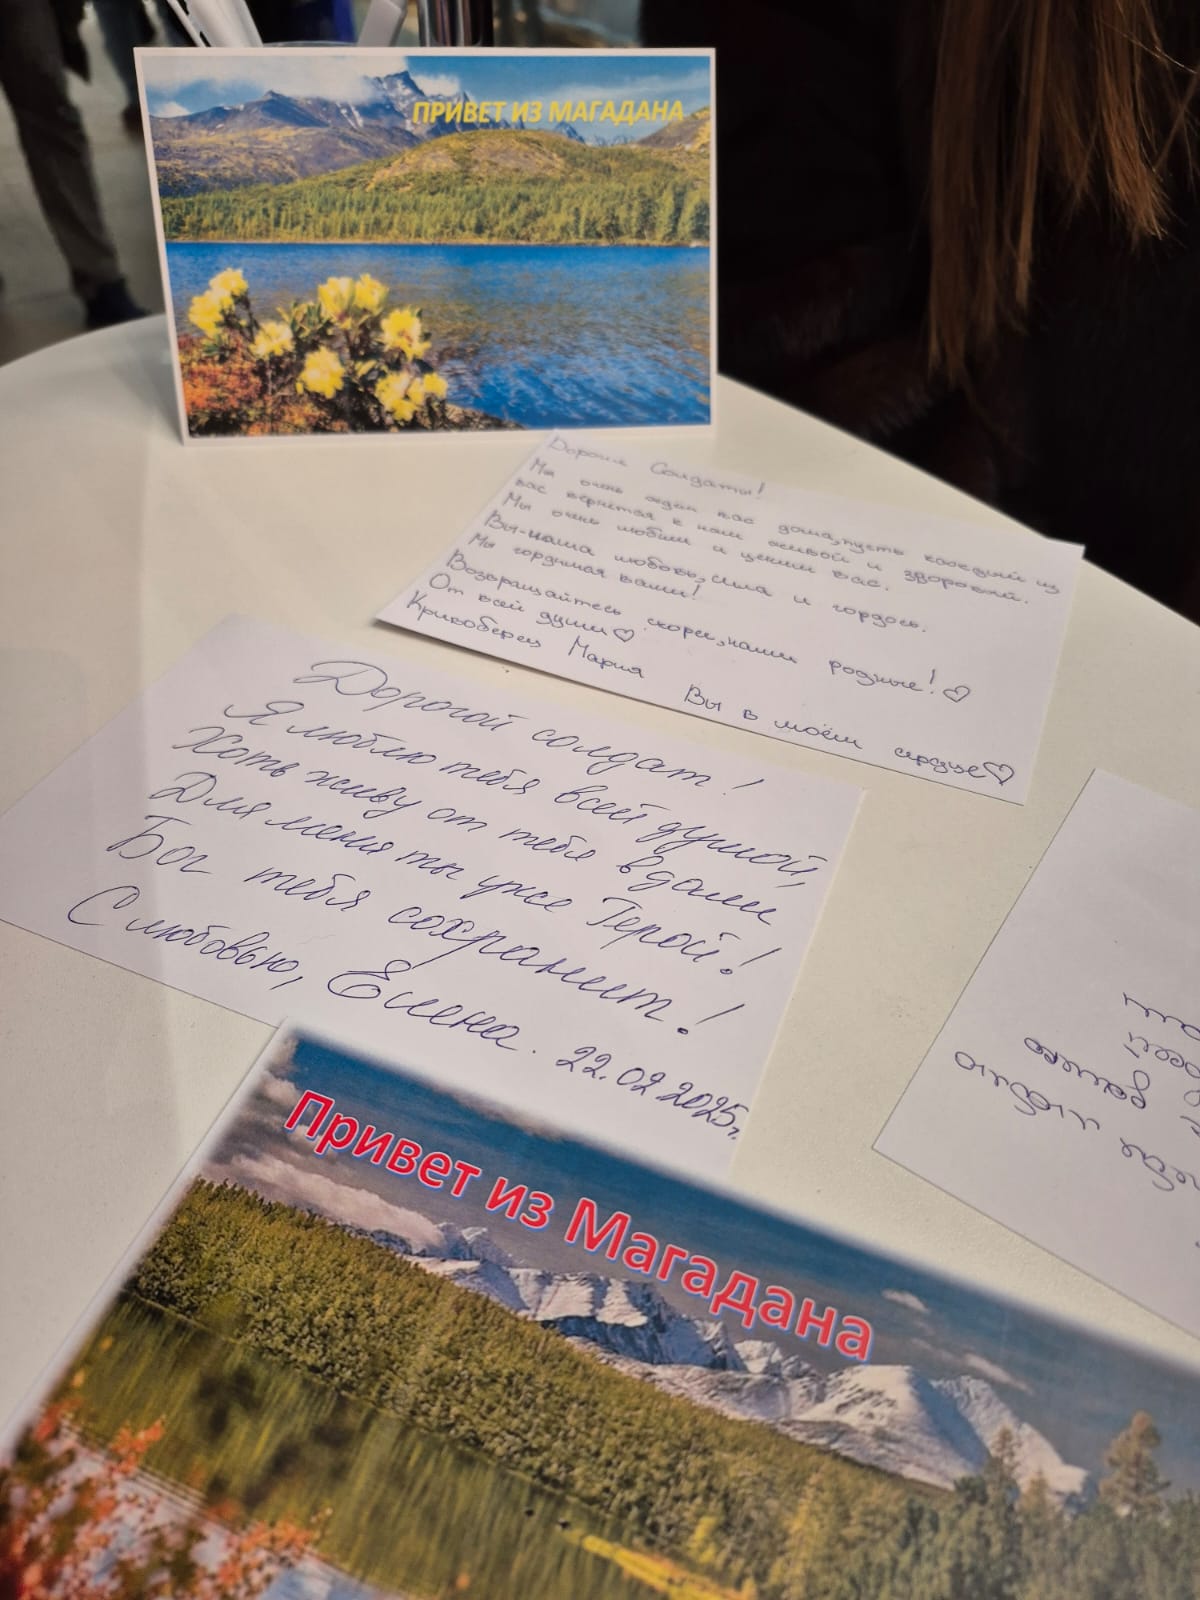 ПРИВЕТ ИЗ МАГАДАНА
Дорогие Солдаты!
Мы очень ждём вас дома, пусть каждый из
вас вернется к нам живой и здоровый.
Мы очень любим и ценим вас.
Вы-наша любовь, сила и гордость.
Мы гордимся вами!
Возвращайтесь скорее, наши родные! ♡
От всей души ♡
Кривоберец Мария
Вы в моём сердце ♡
Дорогой солдат!
Я люблю тебя всей душой,
Хоть живу от тебя вдали
Для меня ты уже Герой!
Бог тебя сохранит!
С любовью, Елена. 22.02.2025г.
Привет из Магадана